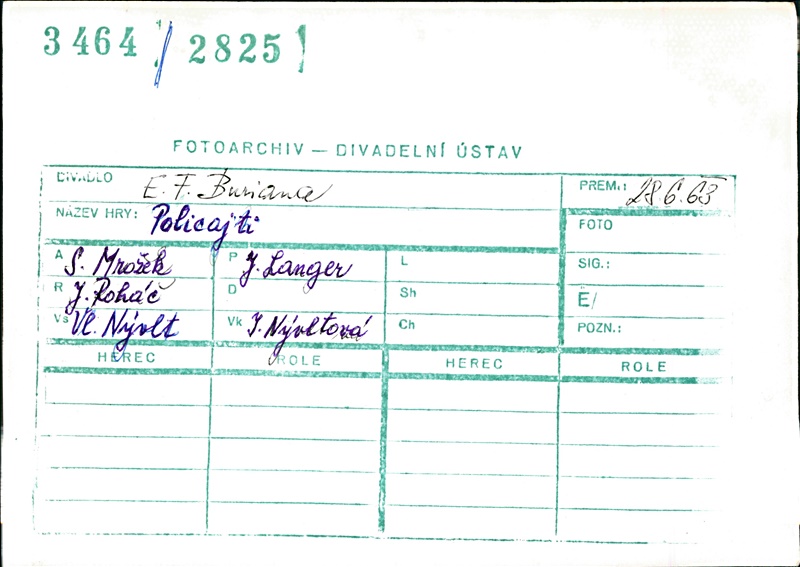 3464 / 2825 /
FOTOARCHIV — DIVADELNÍ ÚSTAV
DIVADLO E. F. Buriana
PREM.: 28.6.63
NÁZEV HRY: Policajti
FOTO
A S. Mrožek P J. Langer L
SIG.:
R J. Roháč D Sh
Ë/
Vs Vl. Nývlt Vk J. Nývltová Ch
POZN.:
HEREC ROLE HEREC ROLE